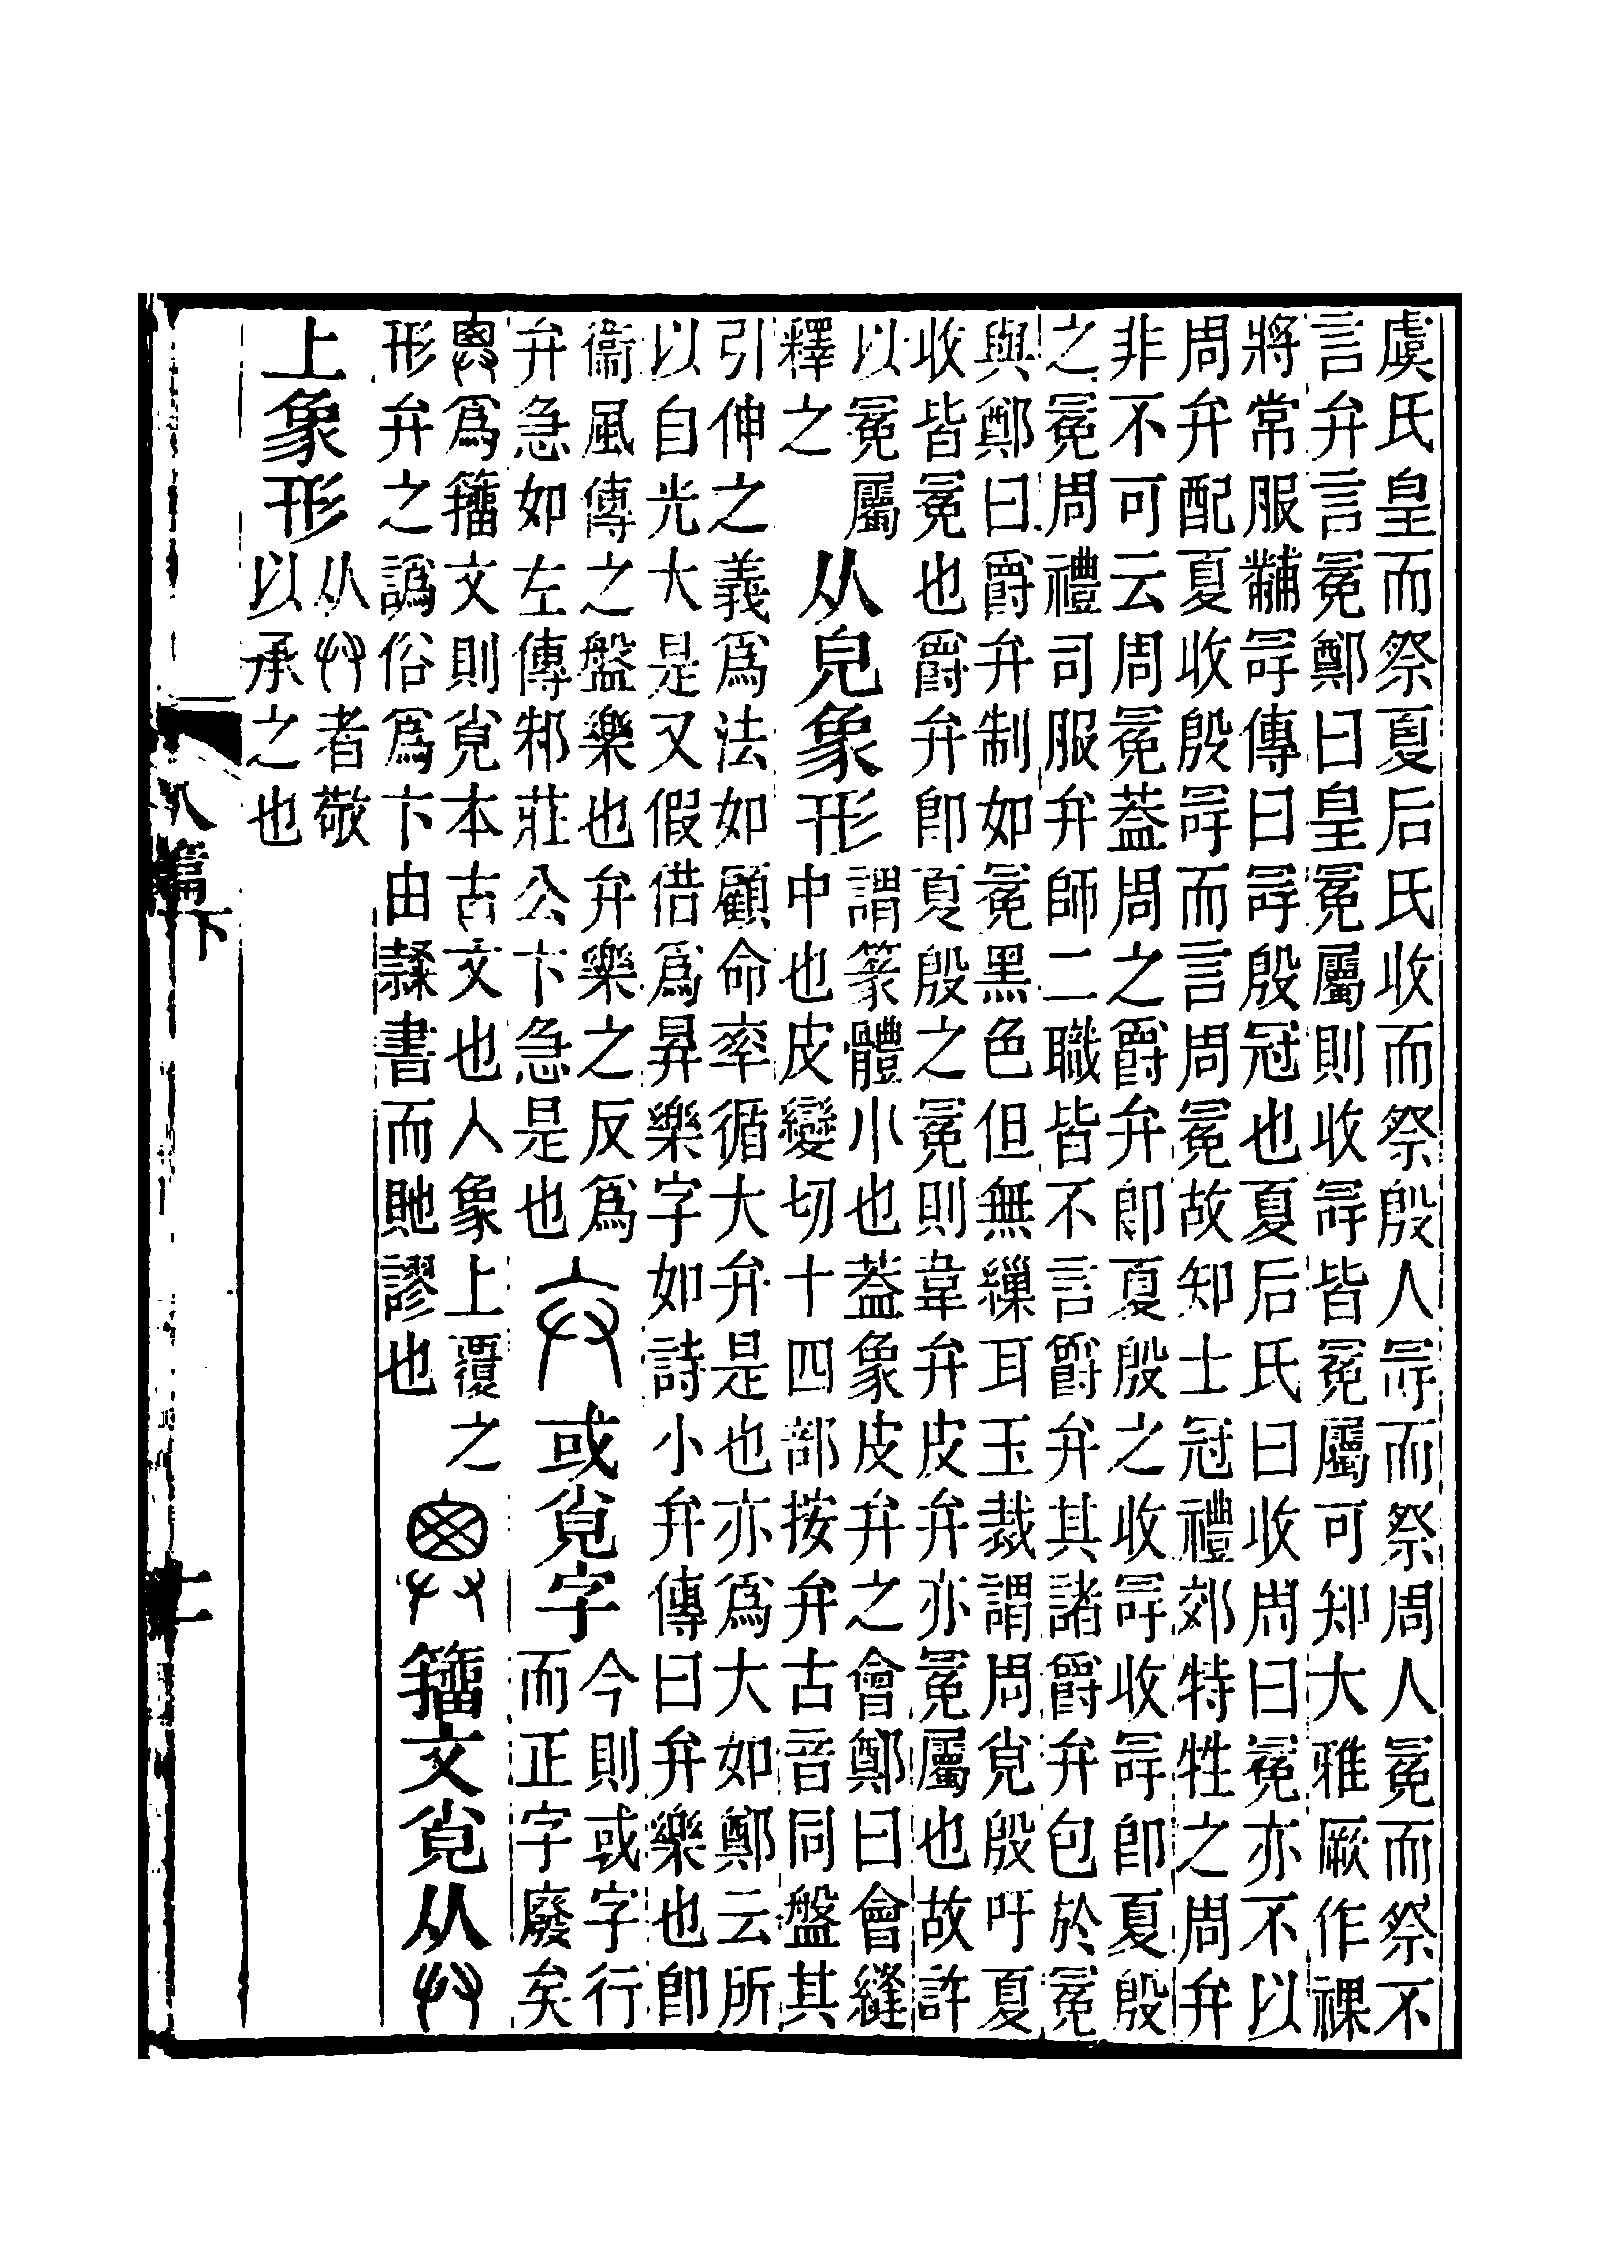 虞氏皇而祭夏后氏收而祭殷人冔而祭周人冕而祭不
言弁言冕鄭曰皇冕屬則收冔皆冕屬可知大雅厥作祼
將常服黼冔傳曰冔殷冠也夏后氏曰收周曰冕亦不以
周弁配夏收殷冔而言周冕故知士冠禮郊特牲之周弁
非不可云周冕葢周之爵弁卽夏殷之收冔收冔卽夏殷
之冕周禮司服弁師二職皆不言爵弁其諸爵弁包於冕
與鄭曰爵弁制如冕黑色但無繅耳玉裁謂周覍殷吁夏
收皆冕也爵弁卽夏殷之冕則韋弁皮弁亦冕屬也故許
以冕屬
釋之
从皃象形
謂篆體小也葢象皮弁之會鄭曰會縫
中也皮變切十四部按弁古音同盤其
引伸之義爲法如顧命率循大弁是也亦爲大如鄭云所
以自光大是又假借爲昇樂字如詩小弁傳曰弁樂也卽
衞風傳之盤樂也弁樂之反爲
弁急如左傳邾莊公卞急是也
或覍字
今則或字行
而正字廢矣
𢍍爲籒文則覍本古文也人象上覆之
形弁之譌俗爲卞由隸書而貤謬也
𢍍
籒文覍从𠬞
上象形
从𠬞者敬
以承之也
八篇下
十一